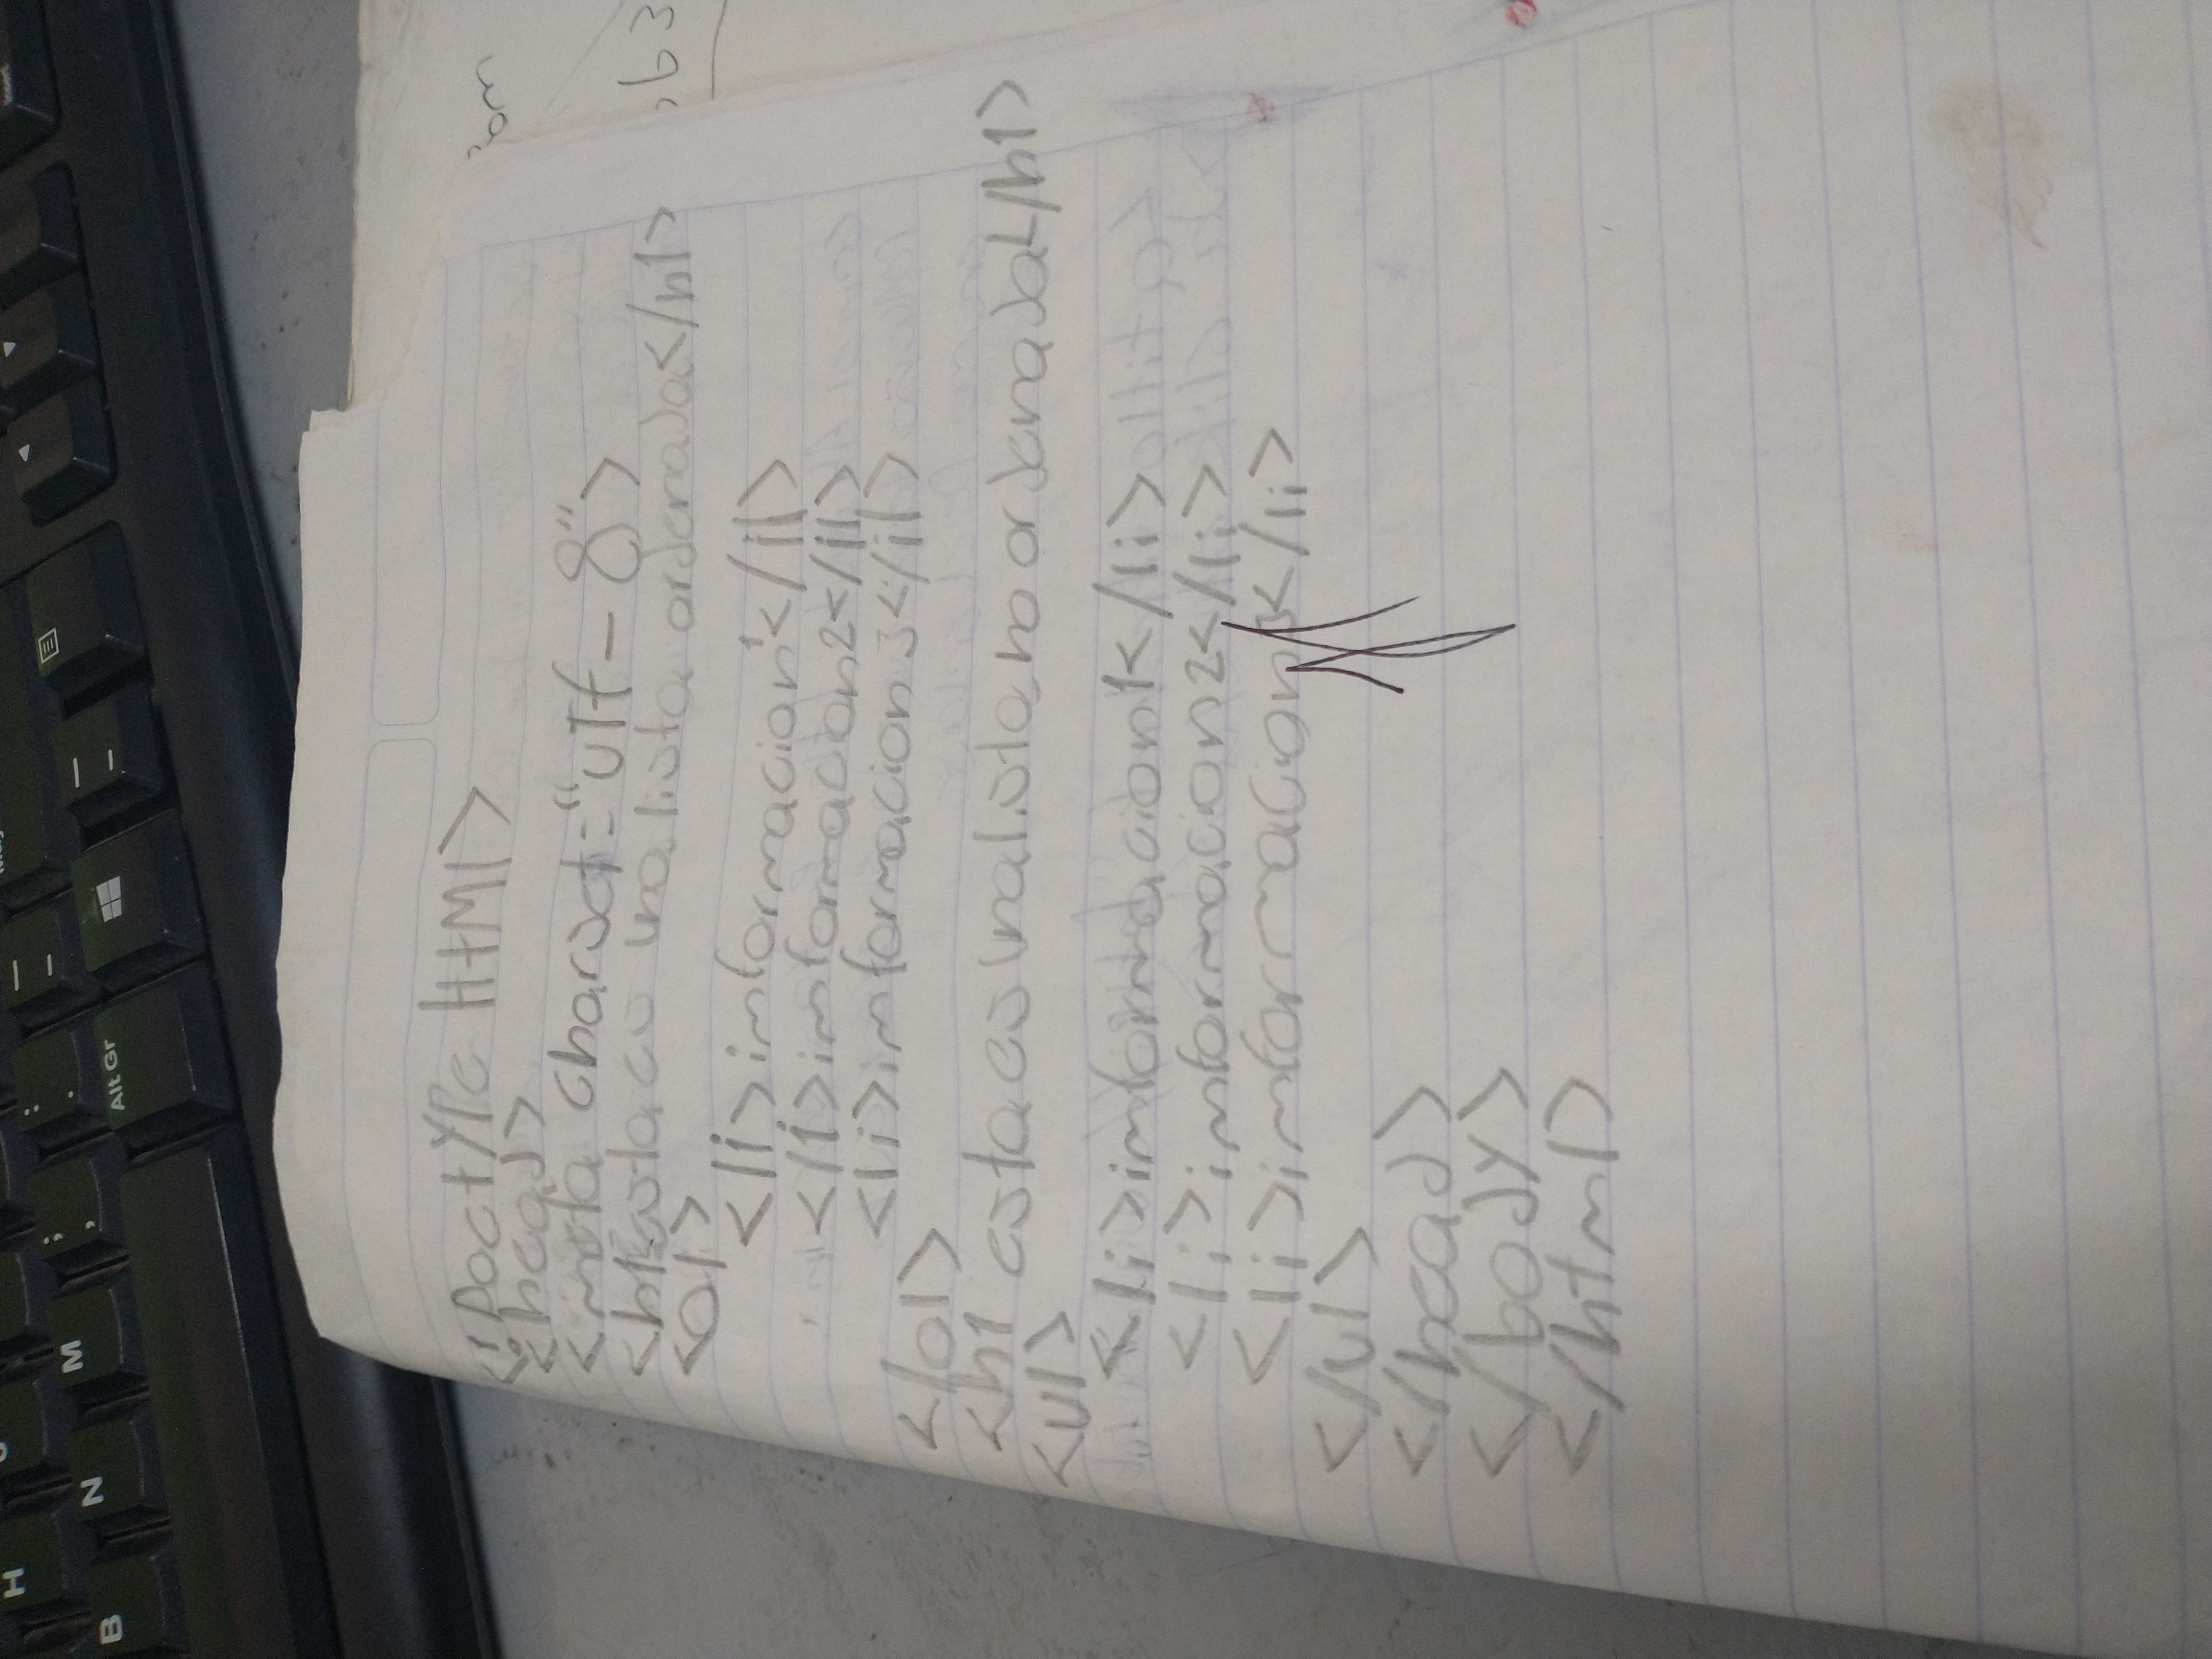 H
B N M ; , : . — –
Alt Gr — –
Insert
<!Doctype HtMl>
<head>
<meta charset="uTf-8">
<h1Esta es una lista ordenada</h1>
<ol>
<li>imformacion1</il>
</li>imformacion2</il>
<li>imformacion 3</il>
</ol>
<h1 esta es una lista no ordenada</h1>
<ul>
<li>imformacion1</li>
<li>imformacion2</li>
<li>imformacion3</li>
</ul>
</head>
</body>
</html>
63